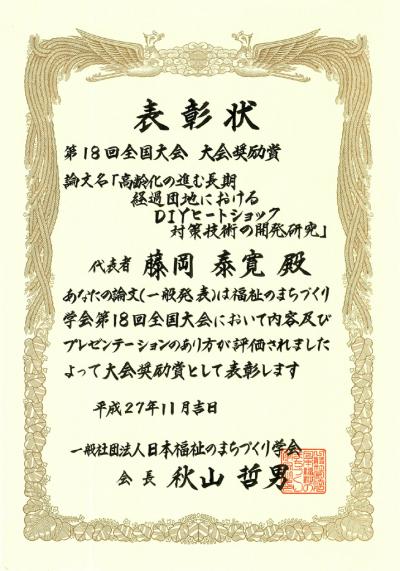 表彰状
第18回全国大会 大会奨励賞
論文名「高齢化の進む長期
経過団地における
DIYヒートショック
対策技術の開発研究」
代表者 藤岡 泰寛 殿
あなたの論文(一般発表)は福祉のまちづくり
学会第18回全国大会において内容及び
プレゼンテーションのあり方が評価されました
よって大会奨励賞として表彰します
平成27年11月吉日
一般社団法人日本福祉のまちづくり学会
会長 秋山 哲男